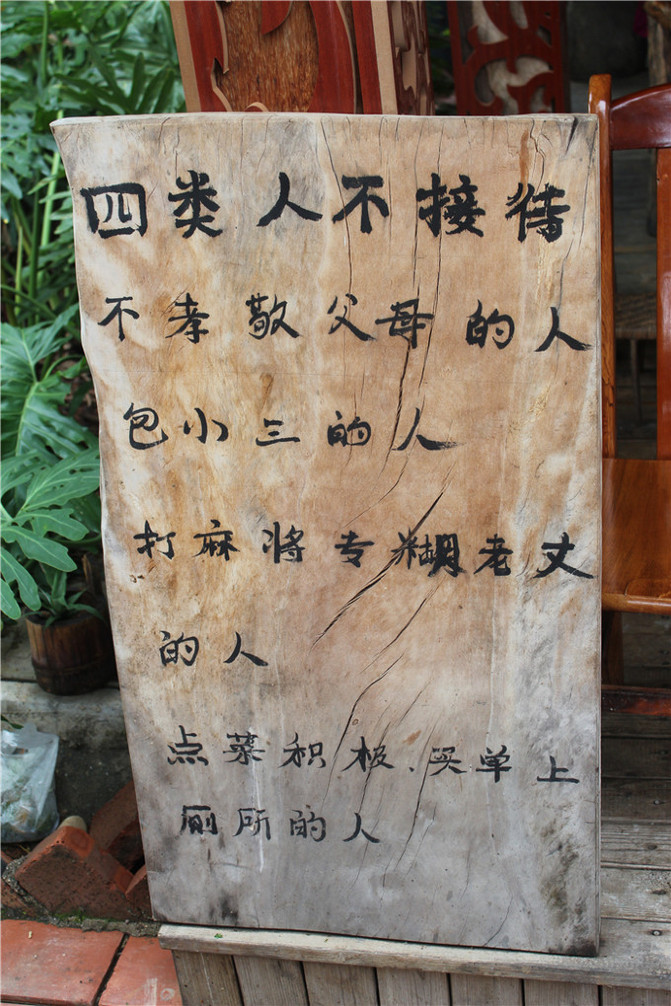 四类人不接待
不孝敬父母的人
包小三的人
打麻将专糊老丈
的人
点菜积极、买单上
厕所的人